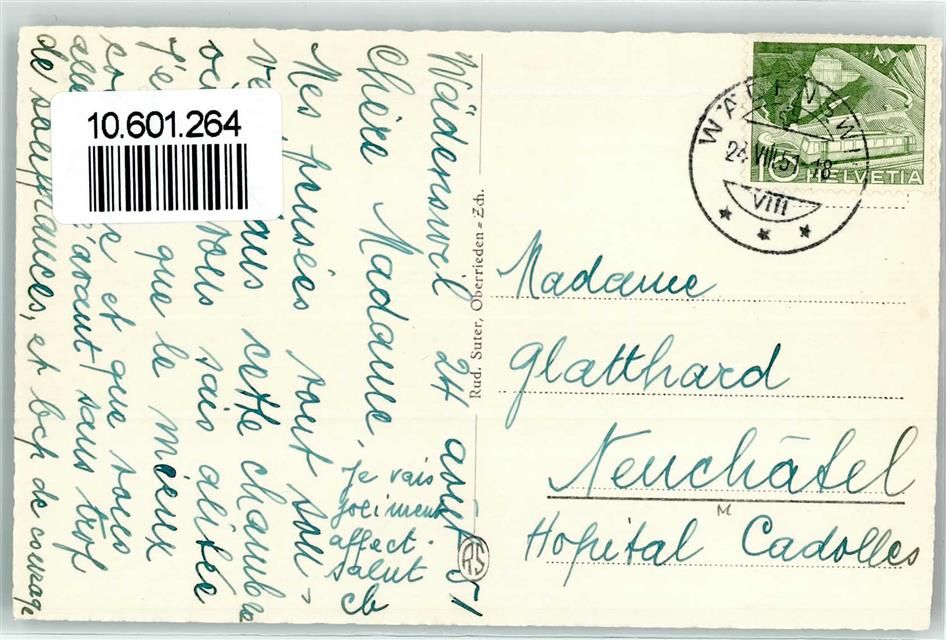 Wädenswil 24 août 51
Chère Madame,
Mes pensées vont sou-
cette chambre
vous sais alitée
que le mieux
et que vous
sans trop
de souffrances, et bcp de courage
Je vais
affect.
salut
Rud. Suter, Oberrieden-Zch.
RS
10.601.264
WÄDENSWIL
24.VIII.51-18
VIII
10 HELVETIA
Madame
Glatthard
Neuchâtel
M
Hopital Cadolles